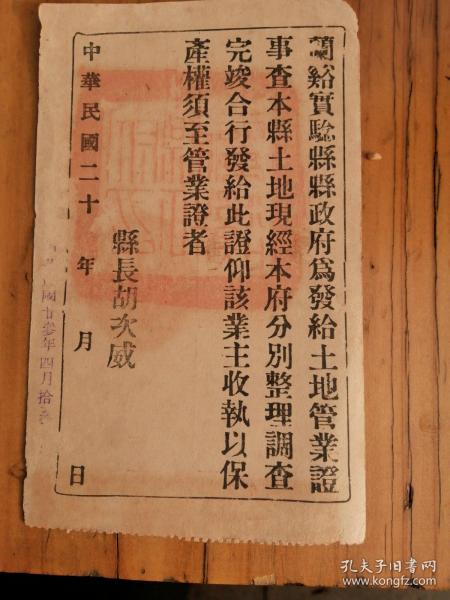 蘭谿實驗縣縣政府爲發給土地管業證
事查本縣土地現經本府分别整理調查
完竣合行發給此證仰該業主收執以保
產權須至管業證者
縣長胡次威
中華民國二十 年 月 日
國廿叄年四月拾
孔夫子旧书网
www.kongfz.com